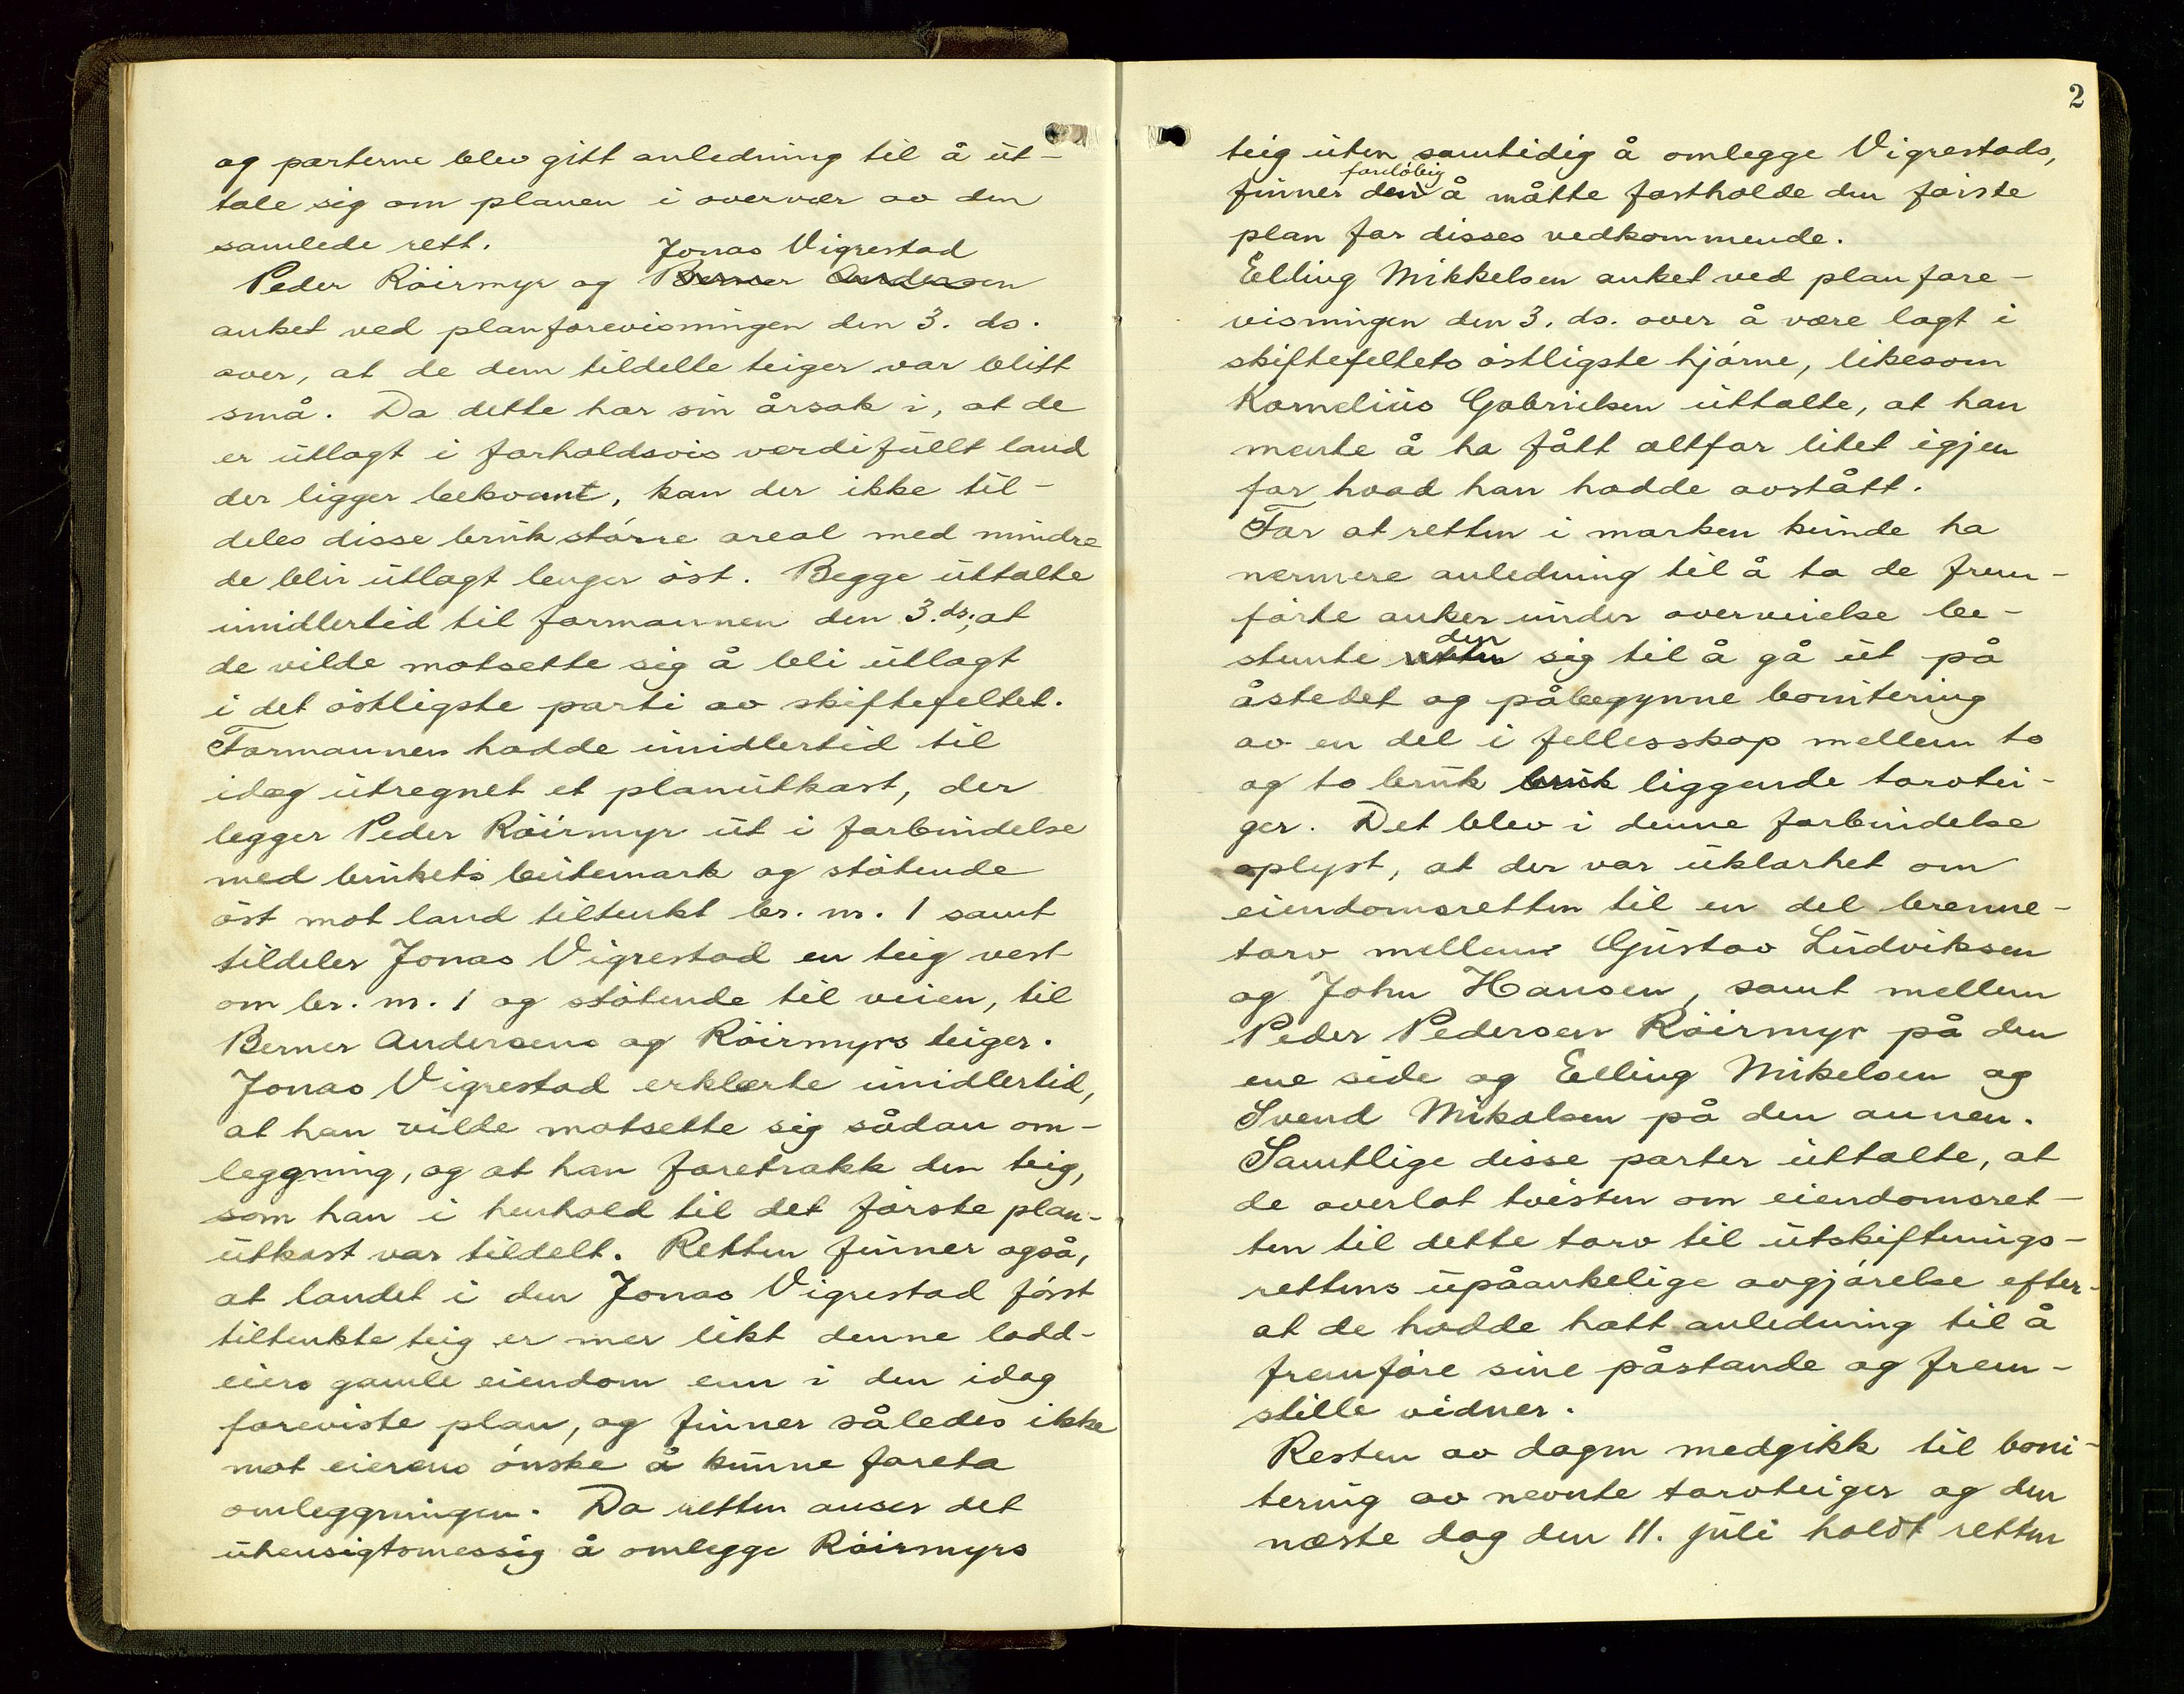 og parterne blev gitt anledning til å ut-
tale sig om planen i overvær av den
samlede rett.
Jonas Vigrestad
Peder Röirmyr og Berner Andersen
anket ved planforevisningen den 3. ds.
over, at de dem tildelte teiger var blitt
små. Da dette har sin årsak i, at de
er utlagt i forholdsvis verdifullt land
der ligger bekvemt, kan der ikke til-
deles disse bruk större areal med mindre
de blir utlagt lenger öst. Begge uttalte
imidlertid til formannen den 3. ds., at
de vilde motsette sig å bli utlagt
i det östligste parti av skiftefeltet.
Formannen hadde imidlertid til
idag utregnet et planutkast, der
legger Peder Röirmyr ut i forbindelse
med brukets beitemark og stötende
öst mot land tiltenkt br. nr. 1 samt
tildeler Jonas Vigrestad en teig vest
om br. nr. 1 og stötende til veien, til
Berner Andersens og Röirmyrs teiger.
Jonas Vigrestad erklærte imidlertid,
at han vilde motsette sig sådan om-
leggning, og at han foretrakk den teig,
som han i henhold til det förste plan-
utkast var tildelt. Retten finner også,
at landet i den Jonas Vigrestad först
tiltenkte teig er mer likt denne lodd-
eiers gamle eiendom enn i den idag
foreviste plan, og finner således ikke
mot eierens önske å kunne foreta
omleggningen. Da retten anser det
uhensigtsmessig å omlegge Röirmyrs
2
teig uten samtidig å omlegge Vigrestads,
foreløbig
finner den å måtte fastholde den förste
plan for disses vedkommende.
Elling Mikkelsen anket ved planfore-
visningen den 3. ds. over å være lagt i
skiftefeltets östligste hjörne, likesom
Kornelius Gabrielsen uttalte, at han
mente å ha fått altfor litet igjen
for hvad han hadde avstått.
For at retten i marken kunde ha
nermere anledning til å ta de frem-
förte anker under overveielse be-
den
stemte retten sig til å gå ut på
åstedet og påbegynne bonitering
av en del i fellesskap mellem to
og to bruk bruk liggende torvtei-
ger. Det blev i denne forbindelse
oplyst, at der var uklarhet om
eiendomsretten til en del brenne-
torv mellem Gustav Ludviksen
og John Hansen, samt mellem
Peder Pedersen Röirmyr på den
ene side og Elling Mikelsen og
Svend Mikalsen på den annen.
Samtlige disse parter uttalte, at
de overlot tvisten om eiendomsret-
ten til dette torv til utskiftnings-
rettens upåankelige avgjörelse efter-
at de hadde hatt anledning til å
fremföre sine påstande og frem-
stille vidner.
Resten av dagen medgikk til boni-
tering av nevnte torvteiger og den
næste dag den 11. juli holdt retten